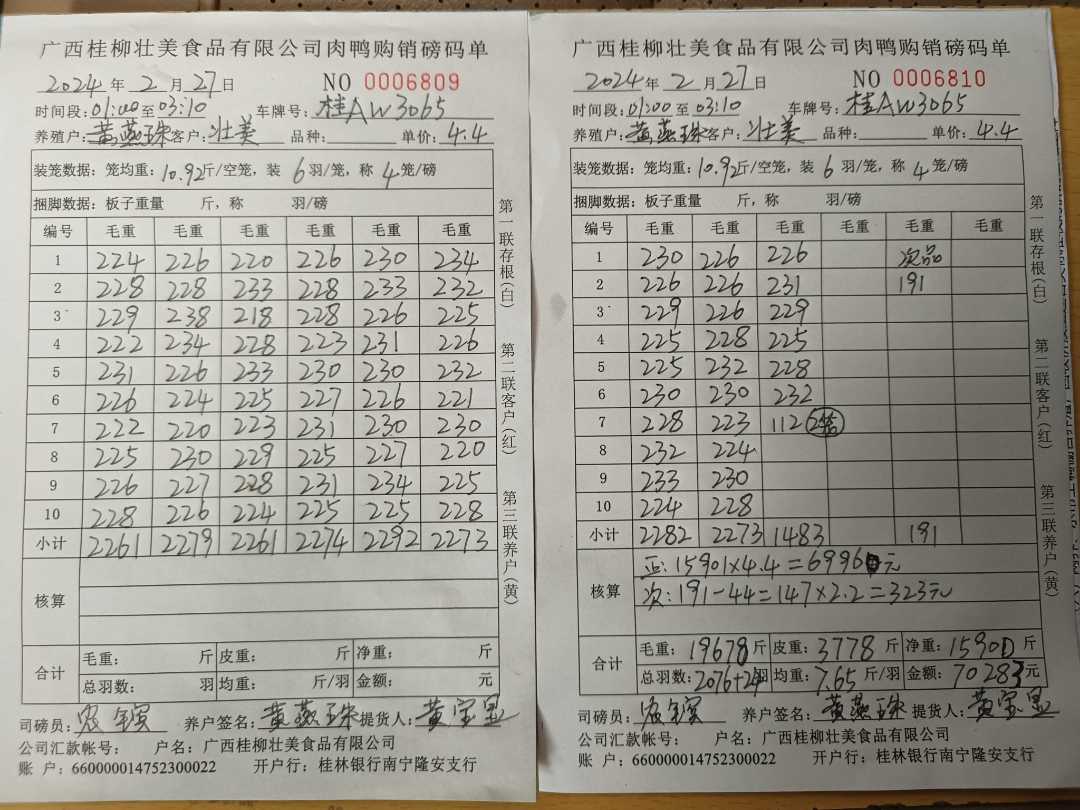 广西桂柳壮美食品有限公司肉鸭购销磅码单
2024 年 2 月 27 日 NO 0006809
时间段: 01:00 至 03:10 车牌号: 桂AW3065
养殖户: 黄燕珠 客户: 壮美 品种: 单价: 4.4
装笼数据: 笼均重: 10.92 斤/空笼, 装 6 羽/笼, 称 4 笼/磅
捆脚数据: 板子重量 斤, 称 羽/磅
编号 毛重 毛重 毛重 毛重 毛重 毛重
1 224 226 220 226 230 234
2 228 228 233 228 233 232
3 229 238 218 228 226 225
4 222 234 228 223 231 226
5 231 226 233 230 230 232
6 226 224 225 227 226 221
7 222 220 223 231 230 230
8 225 230 229 225 227 220
9 226 227 228 231 234 225
10 228 226 224 225 225 228
小计 2261 2279 2261 2274 2292 2273
核算
合计 毛重: 斤 皮重: 斤 净重: 斤
总羽数: 羽 均重: 斤/羽 金额: 元
司磅员: 养户签名: 黄燕珠 提货人:
公司汇款帐号: 户名: 广西桂柳壮美食品有限公司
账 户: 660000014752300022 开户行: 桂林银行南宁隆安支行
第一联存根(白) 第二联客户(红) 第三联养户(黄)
广西桂柳壮美食品有限公司肉鸭购销磅码单
2024 年 2 月 27 日 NO 0006810
时间段: 01:00 至 03:10 车牌号: 桂AW3065
养殖户: 黄燕珠 客户: 壮美 品种: 单价: 4.4
装笼数据: 笼均重: 10.92 斤/空笼, 装 6 羽/笼, 称 4 笼/磅
捆脚数据: 板子重量 斤, 称 羽/磅
编号 毛重 毛重 毛重 毛重 毛重 毛重
1 230 226 226 次品
2 226 226 231 191
3 229 226 229
4 225 228 225
5 225 232 228
6 230 230 232
7 228 223 112 2笼
8 232 224
9 233 230
10 224 228
小计 2282 2273 1483 191
核算 正: 15901×4.4=69960元
次: 191-44=147×2.2=323元
合计 毛重: 19678 斤 皮重: 3778 斤 净重: 15900 斤
总羽数: 2076+24 羽 均重: 7.65 斤/羽 金额: 70283 元
司磅员: 养户签名: 黄燕珠 提货人:
公司汇款帐号: 户名: 广西桂柳壮美食品有限公司
账 户: 660000014752300022 开户行: 桂林银行南宁隆安支行
第一联存根(白) 第二联客户(红) 第三联养户(黄)